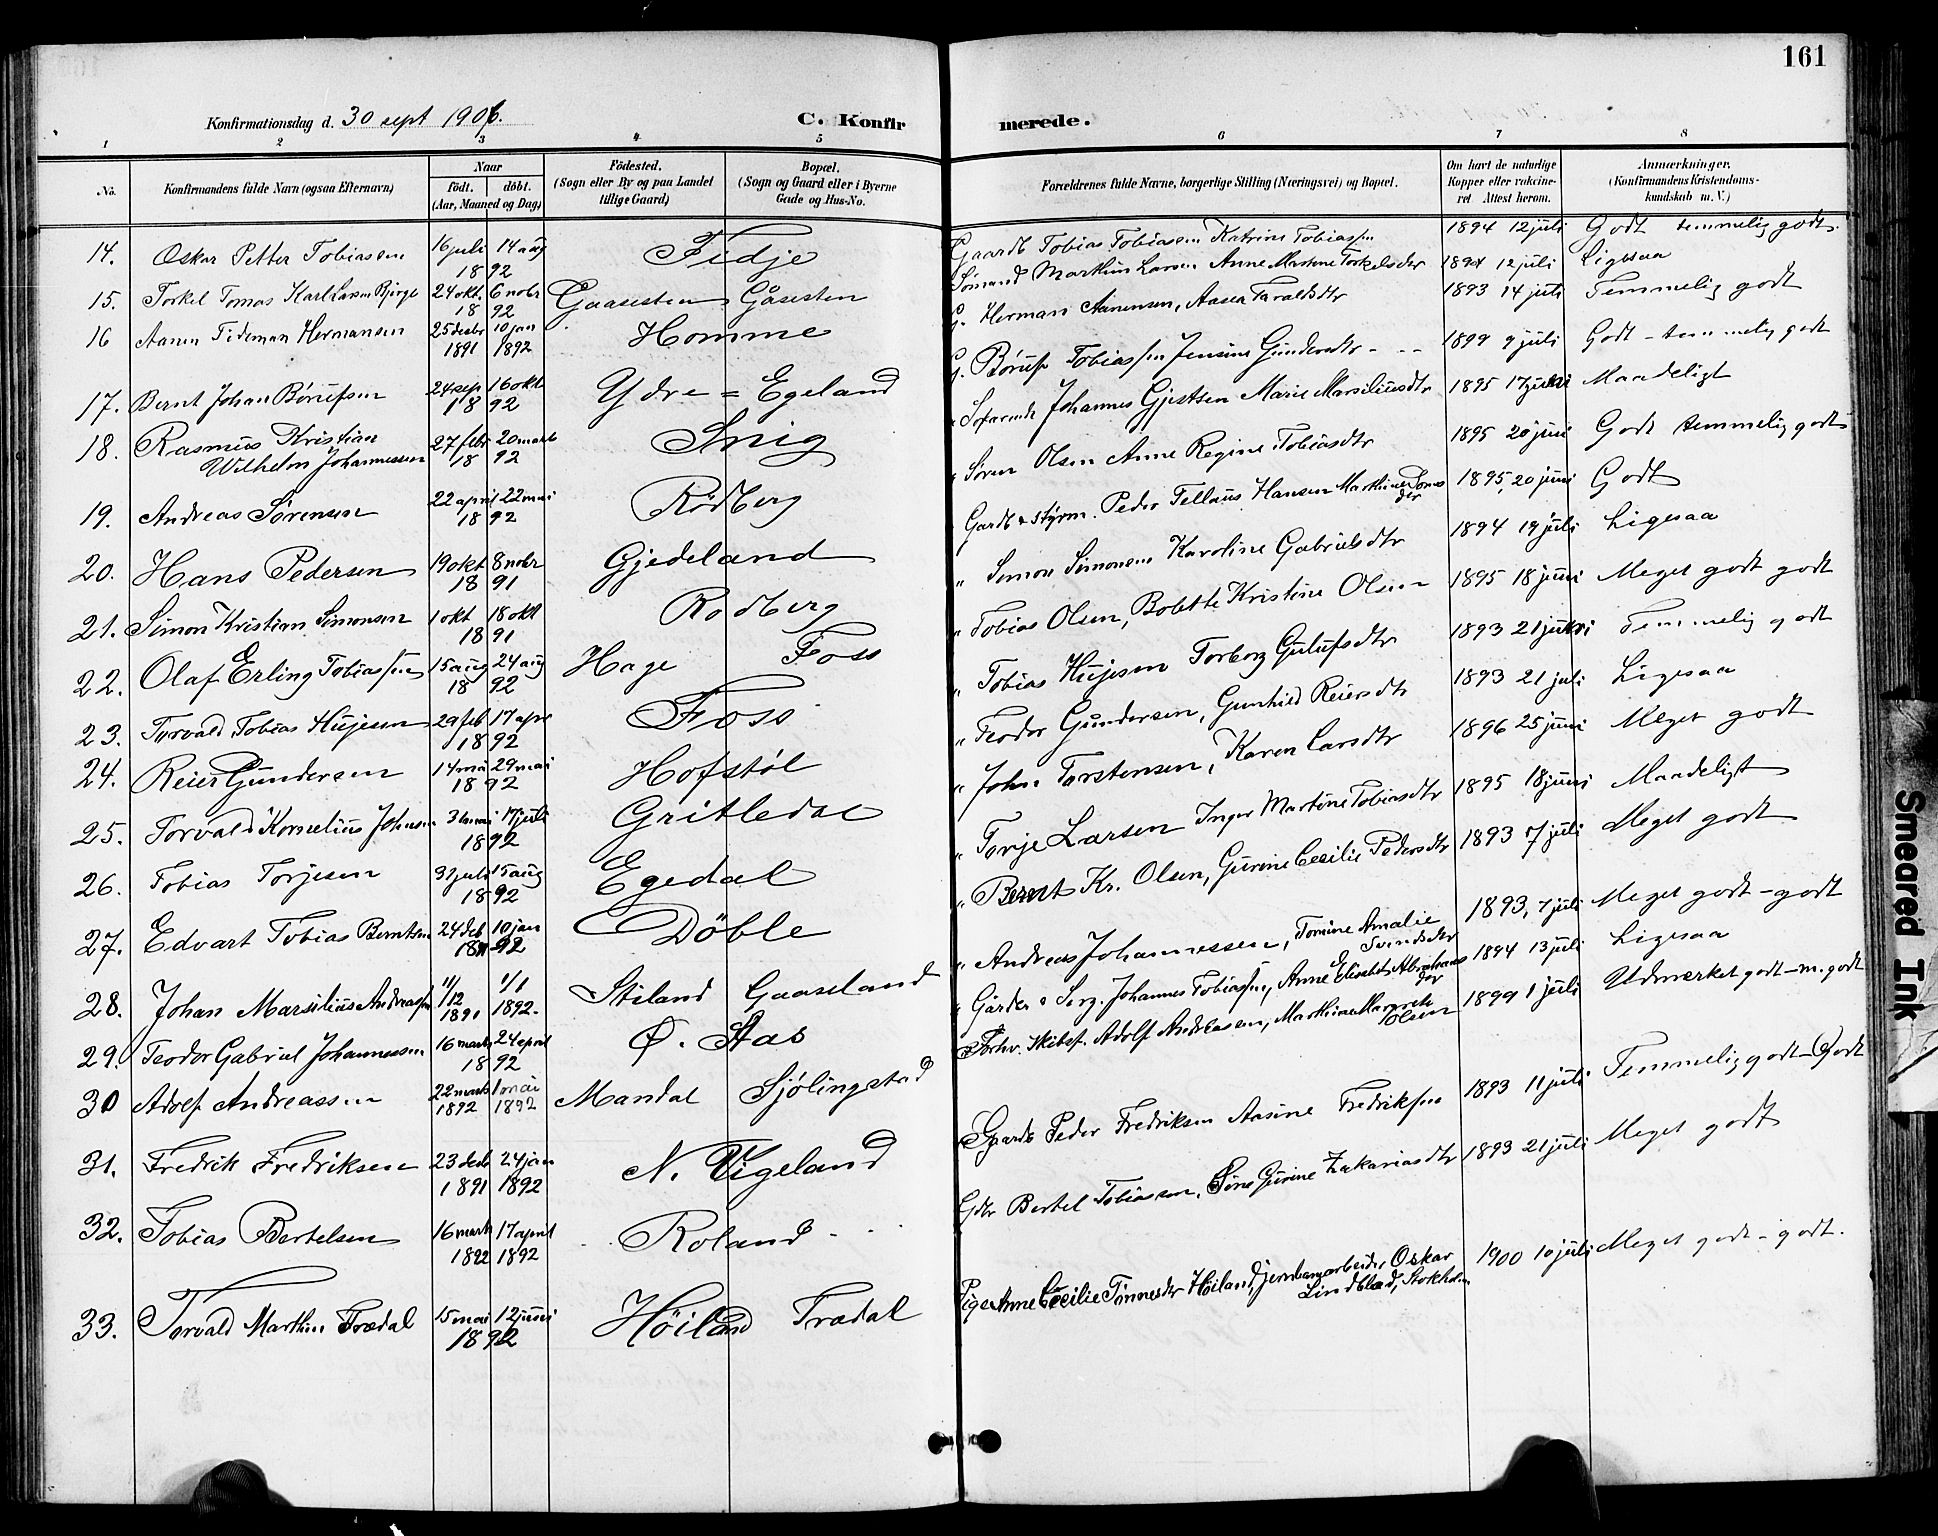 161
Konfirmationsdag d. 30 sept 1906. C. Konfirmerede.
1 2 3 4 5 6 7 8
No. Konfirmandens fulde Navn (ogsaa Efternavn) Naar födt. döbt. (Aar, Maaned og Dag) Födested. (Sogn eller By og paa Landet tillige Gaard) Bopæl. (Sogn og Gaard eller i Byerne Gade og Hus-No. Forældrenes fulde Navne, borgerlige Stilling (Næringsvei) og Bopæl. Om havt de naturlige Kopper eller vakcineret. Attest herom. Anmærkninger. (Konfirmandens Kristendomskundskab m. V.)
14. Oskar Petter Tobiassen 16 juli 14 aug 1892 Fidje Gaardb Tobias Tobiassen Katrine Tobiassen 1894 12 juli Godt temmelig godt.
15. Torkel Tomas Karl Larsen Bjørge 24 okt. 6 nobr 1892 Gaasesten Gåsesten Sömand Marthin Larsen Anne Martene Torkelsdtr 1894 12 juli Ligesaa
16 Aanen Tideman Hermansen 25 decbr 1891 10 jan 1892 Homme G. Herman Aanensen, Aasea Taraldsdtr 1893 14 juli Temmelig godt
17. Bernt Johan Börufsen 24 sep 16 okt 1892 Ydre = Egeland G. Böruf Tobiassen Jensine Gundersdtr 1899 9 juli Godt - temmelig godt
18. Rasmus Kristian Wilhelm Johannessen 27 febr 20 marts 1892 Snig Johannes Gjertsen Marie Marsiliusdtr 1895 17 juni Maadeligt
19. Andreas Sørensen 22 april 22 mai 1892 Rødberg " Sören Olsen Anne Regine Tobiasdtr 1895 20 juni Godt temmelig godt
20. Hans Pedersen 19 okt 8 nobr 1891 Gjedeland Gardb & styrm. Peder Tellaus Hansen Marthine Tomasdtr 1895, 20 juni Godt
21. Simon Kristian Simonsen 1 okt 18 okt 1891 Rødberg " Simon Simonsen Karoline Gabrielsdtr 1894 19 juli Ligesaa
22. Olaf Erling Tobiassen 15 aug 24 aug 1892 Hage Foss " Tobias Olsen, Bolette Kristine Olsen 1895 18 juni Meget godt godt
23. Torvald Tobias Hujesen 29 feb 17 apr 1892 Foss " Tobias Hujesen Torborg Gulufsdtr 1893 21 juni Temmelig godt
24. Reier Gundersen 14 mai 29 mai 1892 Hofstøl " Teodor Gundersen, Gunhild Reiersdtr 1893 21 juli Ligesaa
25. Torvald Kornelius Johnsen 31 mai 17 juli 1892 Gritledal " John Torstensen, Karen Larsdtr 1896 25 juni Meget godt
26. Tobias Torjesen 31 juli 15 aug 1892 Egedal " Torje Larsen Inger Martine Tobiasdtr 1895 18 juni Maadeligt
27. Edvart Tobias Berntsen 24 deb 10 jan 1891-92 Döble " Bernt Kr. Olsen, Gurine Cecilie Pedersdtr 1893 7 juli Meget godt
28. Johan Marsilius Andreassen 11/12 1891 1/1 1892. Stiland Gaaseland " Andreas Johannessen, Tomine Amalie Svendsdtr 1893, 7 juli Meget godt - godt
29. Teodor Gabriel Johannessen 16 marts 24 april 1892 Ø. Aas " Gårdbr & Serg. Johannes Tobiassen, Anne Elisabet Abrahamsdtr 1894 13 juli Ligesaa
30 Adolf Andreassen 22 marts 1892 1 mai 1892 Mandal Sjölingstad Forhv. Skibsf. Adolf Andreassen, Marthine Margrete Olsen 1899 1 juli Udmærket godt - m. godt
31. Fredrik Fredriksen 23 decbr 1891 24 jan 1892 N. Vigeland Gaardb Peder Fredriksen Aasine Fredriksen 1893 11 juli Temmelig godt - Godt
32. Tobias Bertelsen 16 marts 1892 17 april 1892 Roland Gdbr Bertel Tobiassen, Sine Gurine Zakariasdtr 1893 21 juli Meget godt
33. Torvald Marthin Trædal 15 mai 12 juni 1892 Höiland Trædal Pige Anne Cecilie Tönnesdtr Höiland, jernbanearbeider Oskar Lindblad, Stokholm 1900 10 juli Meget godt - godt.
Smeared Ink